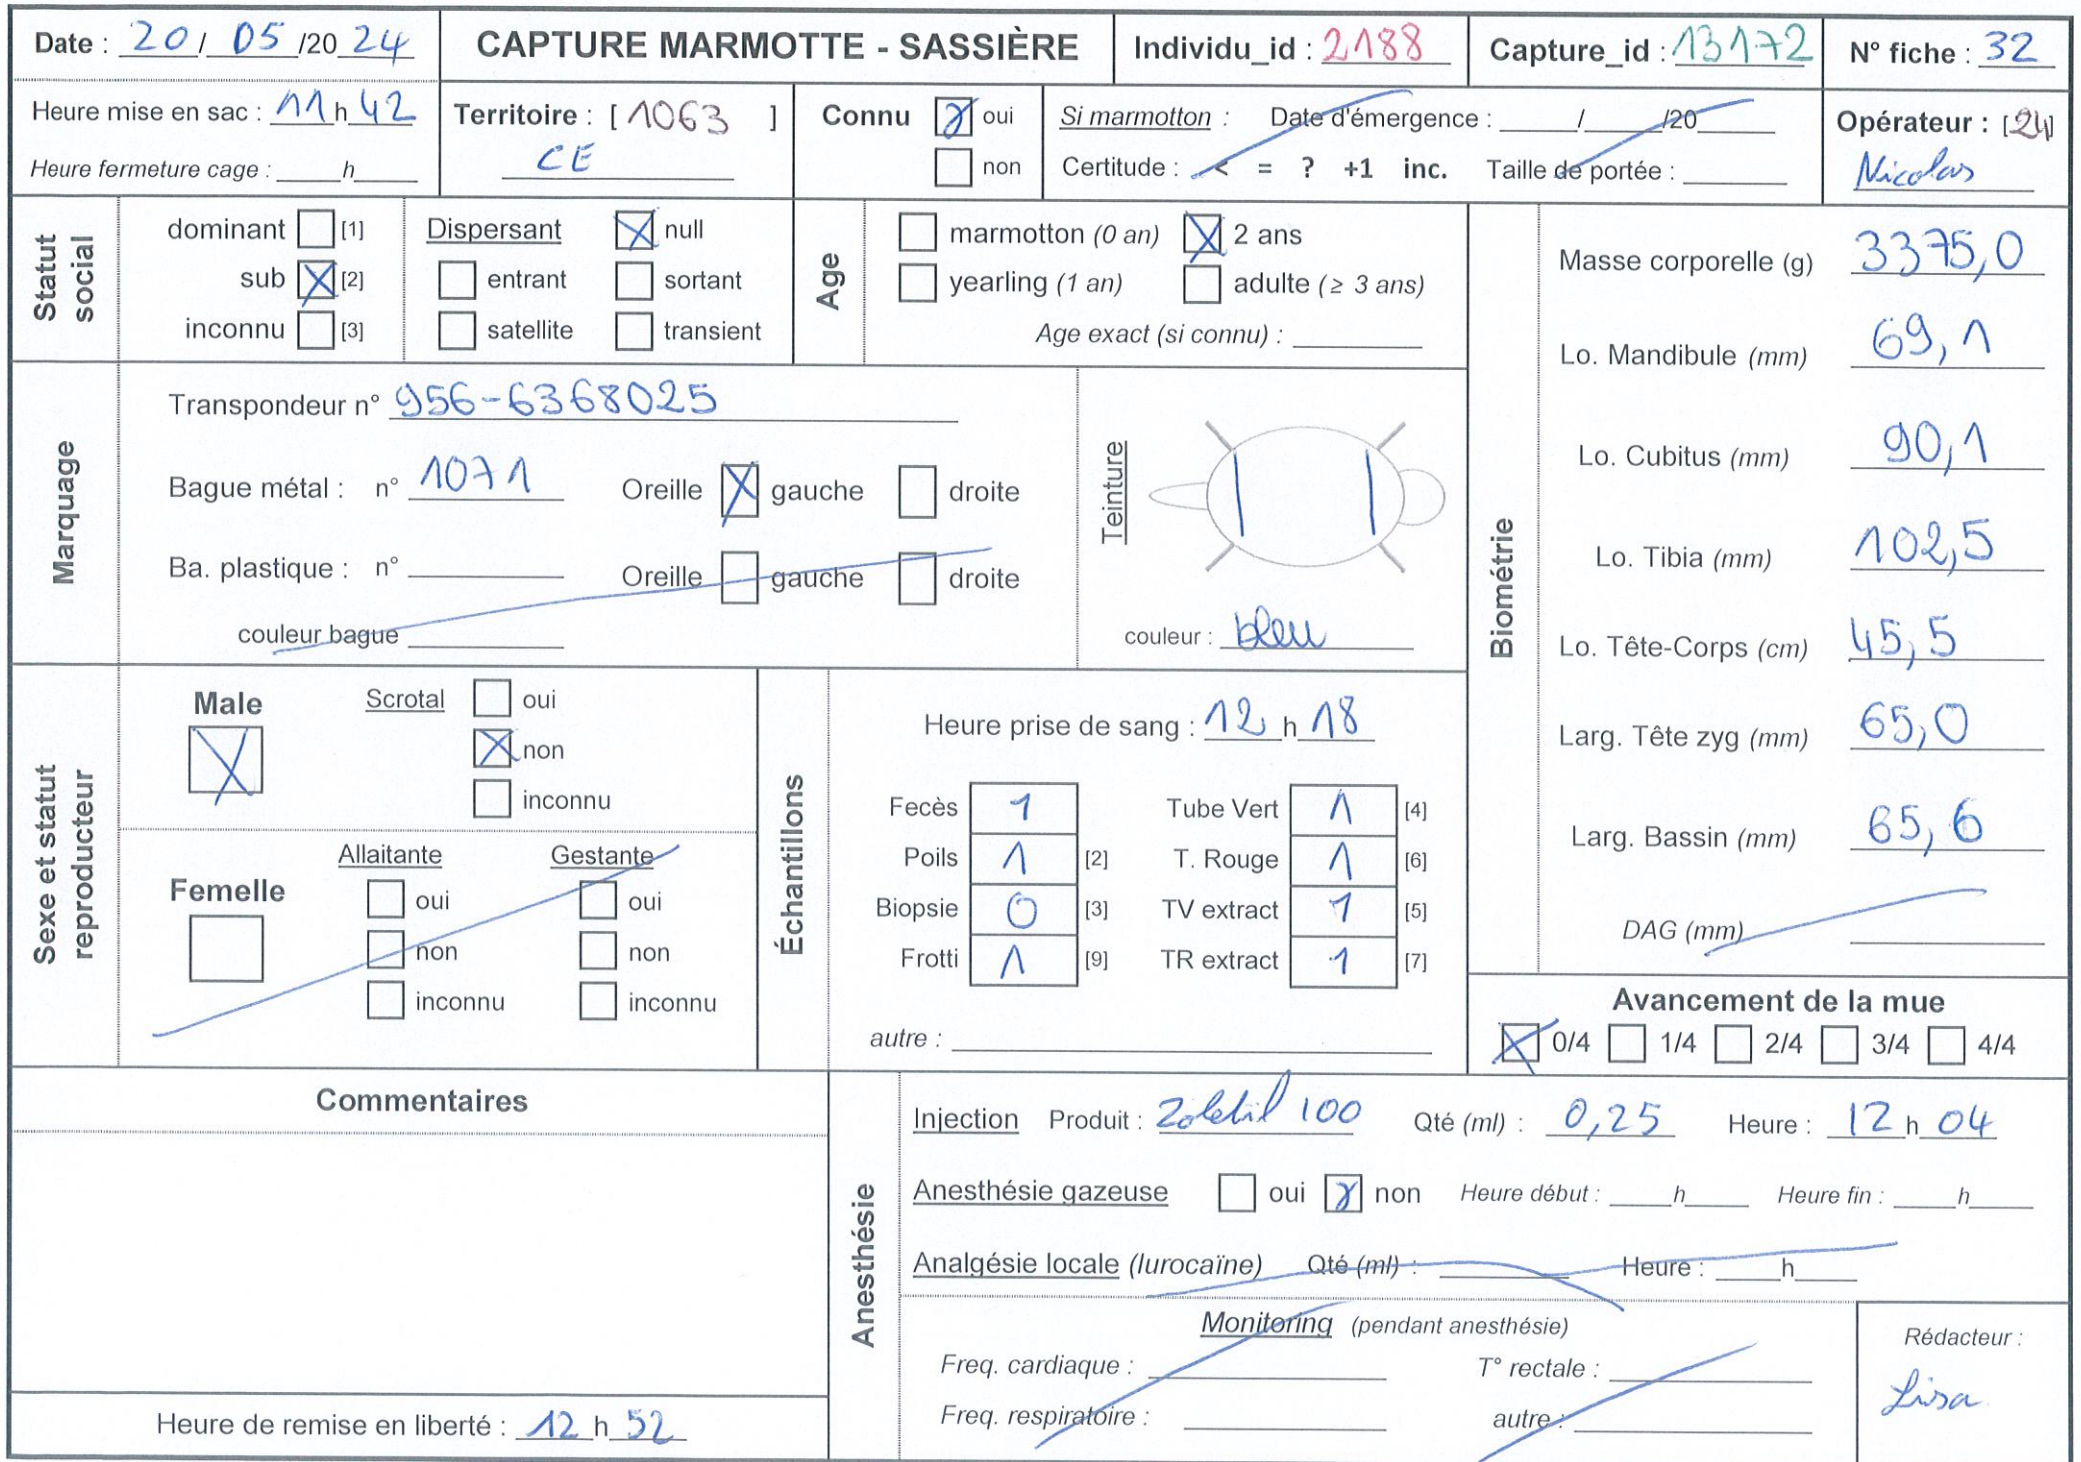 Date : 20 / 05 /20 24
CAPTURE MARMOTTE - SASSIÈRE
Individu_id : 2188
Capture_id : 13172
N° fiche : 32
Heure mise en sac : 11 h 42
Heure fermeture cage : ____h____
Territoire : [ 1063 ]
CE
Connu ☒ oui
☐ non
Si marmotton : Date d'émergence : ____/____/20____
Certitude : < = ? +1 inc. Taille de portée : ____
Opérateur : [24]
Nicolas
Statut social
dominant ☐ [1]
sub ☒ [2]
inconnu ☐ [3]
Dispersant ☒ null
☐ entrant ☐ sortant
☐ satellite ☐ transient
Age
☐ marmotton (0 an) ☒ 2 ans
☐ yearling (1 an) ☐ adulte (≥ 3 ans)
Age exact (si connu) : ____
Marquage
Transpondeur n° 956-6368025
Bague métal : n° 1071 Oreille ☒ gauche ☐ droite
Ba. plastique : n° ____ Oreille ☐ gauche ☐ droite
couleur bague ____
Teinture
couleur : bleu
Biométrie
Masse corporelle (g) 3375,0
Lo. Mandibule (mm) 69,1
Lo. Cubitus (mm) 90,1
Lo. Tibia (mm) 102,5
Lo. Tête-Corps (cm) 45,5
Larg. Tête zyg (mm) 65,0
Larg. Bassin (mm) 65,6
DAG (mm) ____
Sexe et statut reproducteur
Male ☒
Scrotal ☐ oui
☒ non
☐ inconnu
Femelle ☐
Allaitante Gestante
☐ oui ☐ oui
☐ non ☐ non
☐ inconnu ☐ inconnu
Échantillons
Heure prise de sang : 12 h 18
Fecès 1 Tube Vert 1 [4]
Poils 1 [2] T. Rouge 1 [6]
Biopsie 0 [3] TV extract 1 [5]
Frotti 1 [9] TR extract 1 [7]
autre : ____
Avancement de la mue
☒ 0/4 ☐ 1/4 ☐ 2/4 ☐ 3/4 ☐ 4/4
Commentaires
Heure de remise en liberté : 12 h 52
Anesthésie
Injection Produit : Zoletil 100 Qté (ml) : 0,25 Heure : 12 h 04
Anesthésie gazeuse ☐ oui ☒ non Heure début : ____h____ Heure fin : ____h____
Analgésie locale (lurocaïne) Qté (ml) : ____ Heure : ____h____
Monitoring (pendant anesthésie)
Freq. cardiaque : ____ T° rectale : ____
Freq. respiratoire : ____ autre : ____
Rédacteur :
Lisa